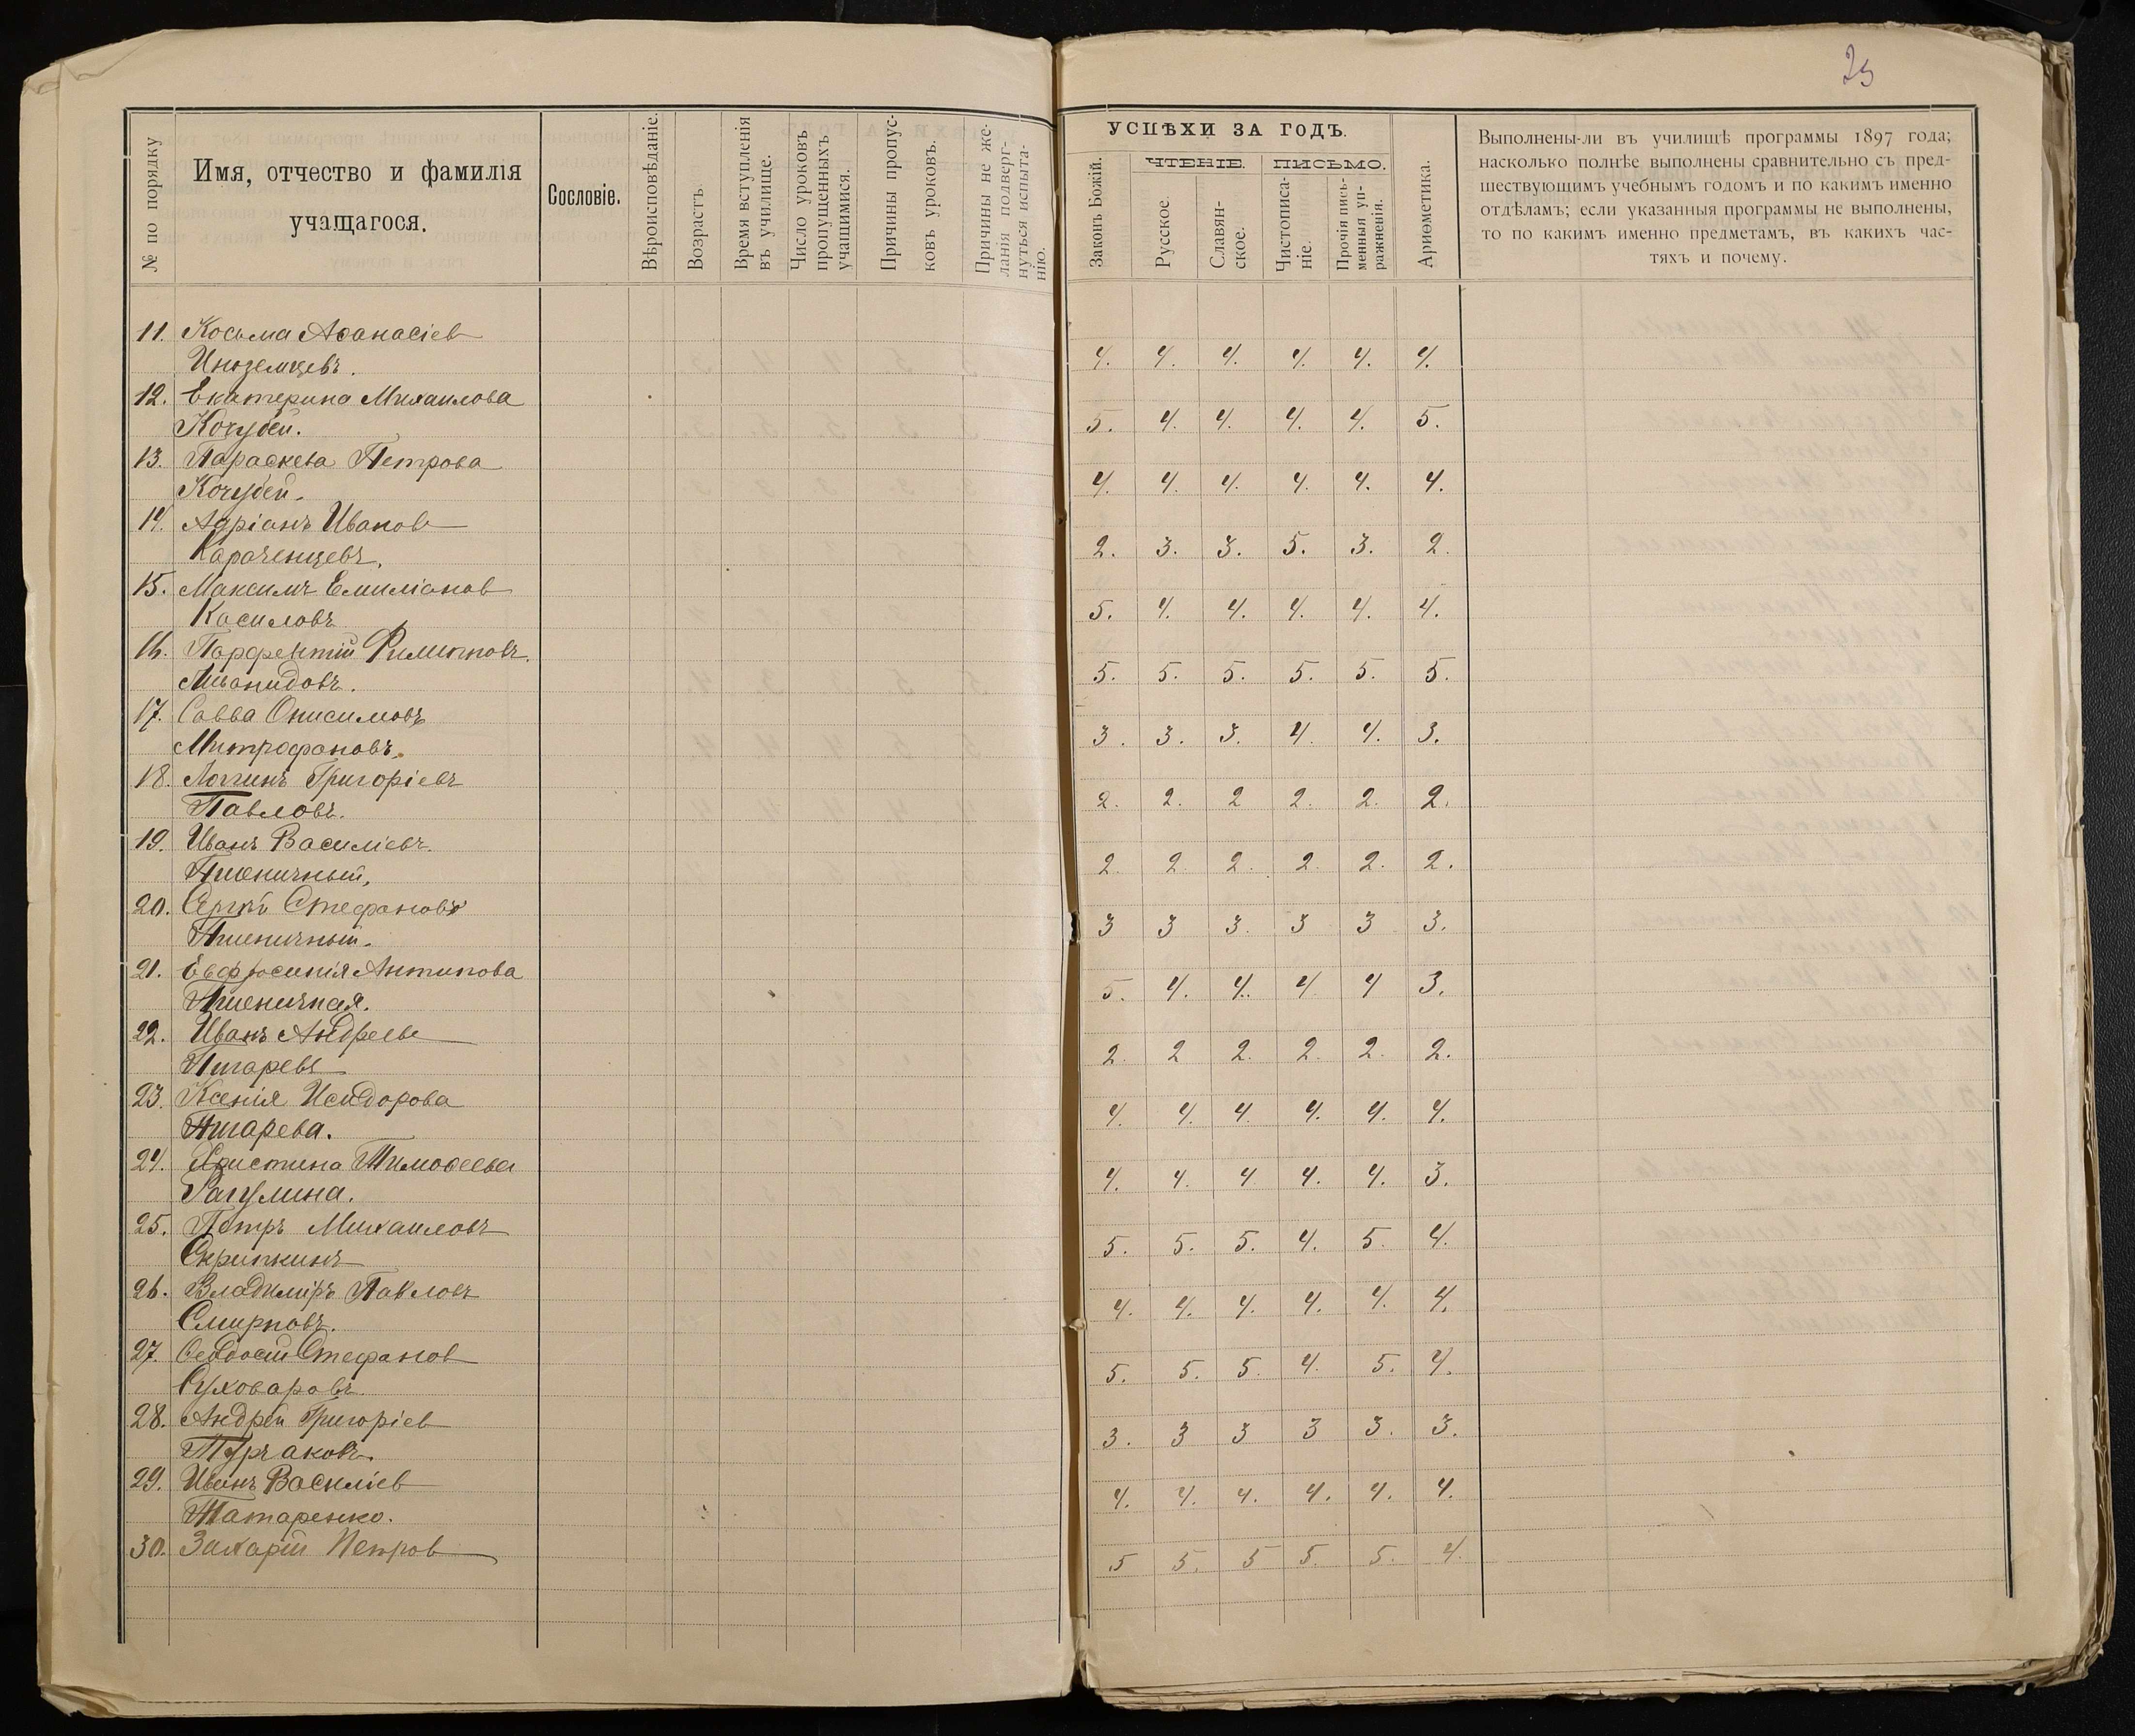 23
№ по порядку
Имя, отчество и фамилія
учащагося.
Сословіе.
Вѣроисповѣданіе.
Возрастъ.
Время вступленія
въ училище.
Число уроковъ
пропущенныхъ
учащимися.
Причины пропус-
ковъ уроковъ.
Причины не же-
ланія подверг-
нуться испыта-
нію.
УСПѢХИ ЗА ГОДЪ.
Законъ Божій.
ЧТЕНІЕ.
Русское.
Славян-
ское.
ПИСЬМО.
Чистописа-
ніе.
Прочія пись-
менныя уп-
ражненія.
Ариѳметика.
Выполнены-ли въ училищѣ программы 1897 года;
насколько полнѣе выполнены сравнительно съ пред-
шествующимъ учебнымъ годомъ и по какимъ именно
отдѣламъ; если указанныя программы не выполнены,
то по какимъ именно предметамъ, въ какихъ час-
тяхъ и почему.
11. Косьма Аѳанасіев
Иноземцевъ. 4. 4. 4. 4. 4. 4.
12. Екатерина Михаилова
Кочубей. 5. 4. 4. 4. 4. 5.
13. Параскева Петрова
Кочубей. 4. 4. 4. 4. 4. 4.
14. Адріанъ Иванов
Караченцевъ. 2. 3. 3. 5. 3. 2.
15. Максимъ Емиліанов
Касиловъ 5. 4. 4. 4. 4. 4.
16. Парфентій Филипповъ.
5. 5. 5. 5. 5. 5.
17. Савва Онисимовъ
Митрофановъ. 3. 3. 3. 4. 4. 3.
18. Логгинъ Григоріевъ
Павловъ. 2. 2. 2 2. 2. 2.
19. Иванъ Василіевъ.
Пшеничный. 2. 2 2. 2. 2. 2.
20. Сергѣй Стефановъ
Пшеничный. 3 3 3. 3 3 3.
21. Евфросинія Антипова
Пшеничная. 5. 4. 4. 4 4 3.
22. Иванъ Андреевъ
Пигаревъ 2. 2 2. 2. 2. 2.
23. Ксенія Исидорова
Пигарева. 4. 4. 4 4. 4. 4.
24. Христина Тимоѳеева
Рагулина. 4. 4. 4 4. 4. 3.
25. Петръ Михаиловъ
Скрипкинъ 5. 5. 5. 4. 5. 4.
26. Владиміръ Павловъ
Смирновъ. 4. 4. 4. 4. 4. 4.
27. Ѳеодосій Стефанов
Суховаровъ. 5. 5. 5. 4. 5. 4.
28. Андрей Григоріев
Турчаковъ. 3. 3 3 3 3. 3.
29. Иванъ Василіев
Татаренко. 4. 4. 4. 4. 4. 4.
30. Захарій Петров
5 5. 5 5. 5. 4.